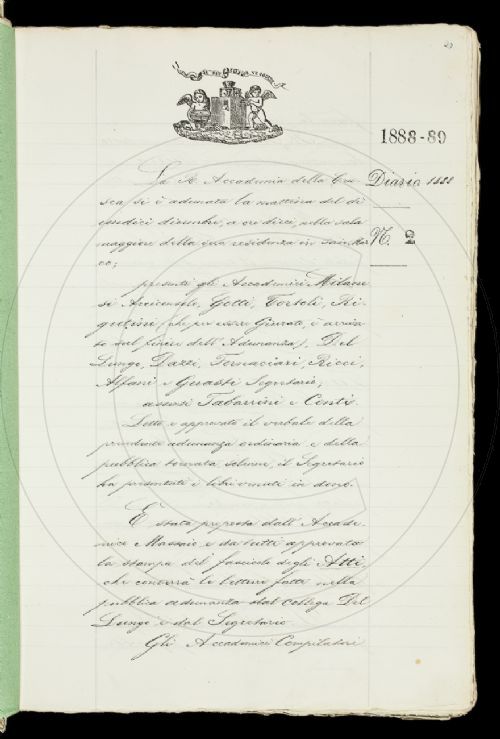 29
1888-89
La R. Accademia della Cru-
Diario 1888
sca si è adunata la mattina del dì
sedici dicembre, a ore dieci, nella sala
maggiore della sua residenza in San Mar
N. 2
co;
presenti gli Accademici Milane
si Arciconsolo, Gotti, Tortoli, Ri-
gutini (che per essere Giurato, è arriva-
to sul finire dell'Adunanza), Del
Lungo, Dazzi, Fornaciari, Ricci,
Alfani e Guasti Segretario;
assenti Tabarrini e Conti.
Letto e approvato il verbale della
precedente adunanza ordinaria, e della
pubblica tornata solenne, il Segretario
ha presentati i libri venuti in dono.
È stata proposta dall'Accade-
mico Massaio, e da tutti approvata
la stampa del fascicolo degli Atti,
che conterrà le letture fatte nella
pubblica adunanza dal collega Del
Lungo e dal Segretario.
Gli Accademici Compilatori